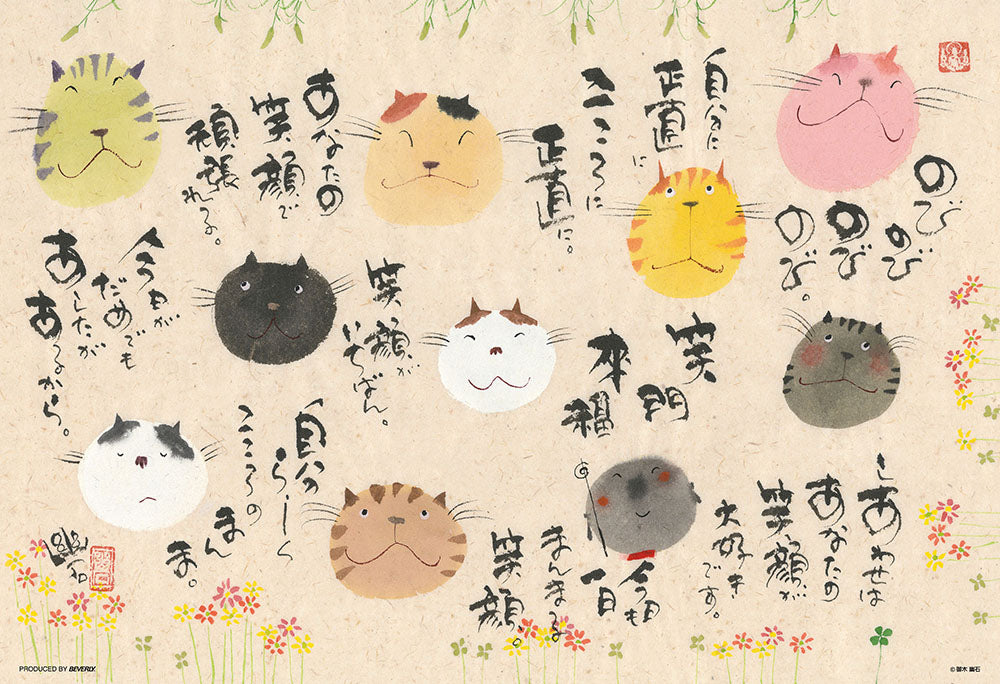 のび
のび
のび
のび。
自分に
正直に
こころに
正直に。
あなたの
笑顔で
頑張
れる。
今日が
だめでも
あしたが
あるから。
笑顔が
いちばん。
笑
門
来
福
しあわせは
あなたの
笑顔が
大好き
です。
今日も
一日
まんまるな
笑顔。
自分
らしく
こころの
まんま
ま。
幽石
PRODUCED BY BEVERLY.
© 御木 幽石